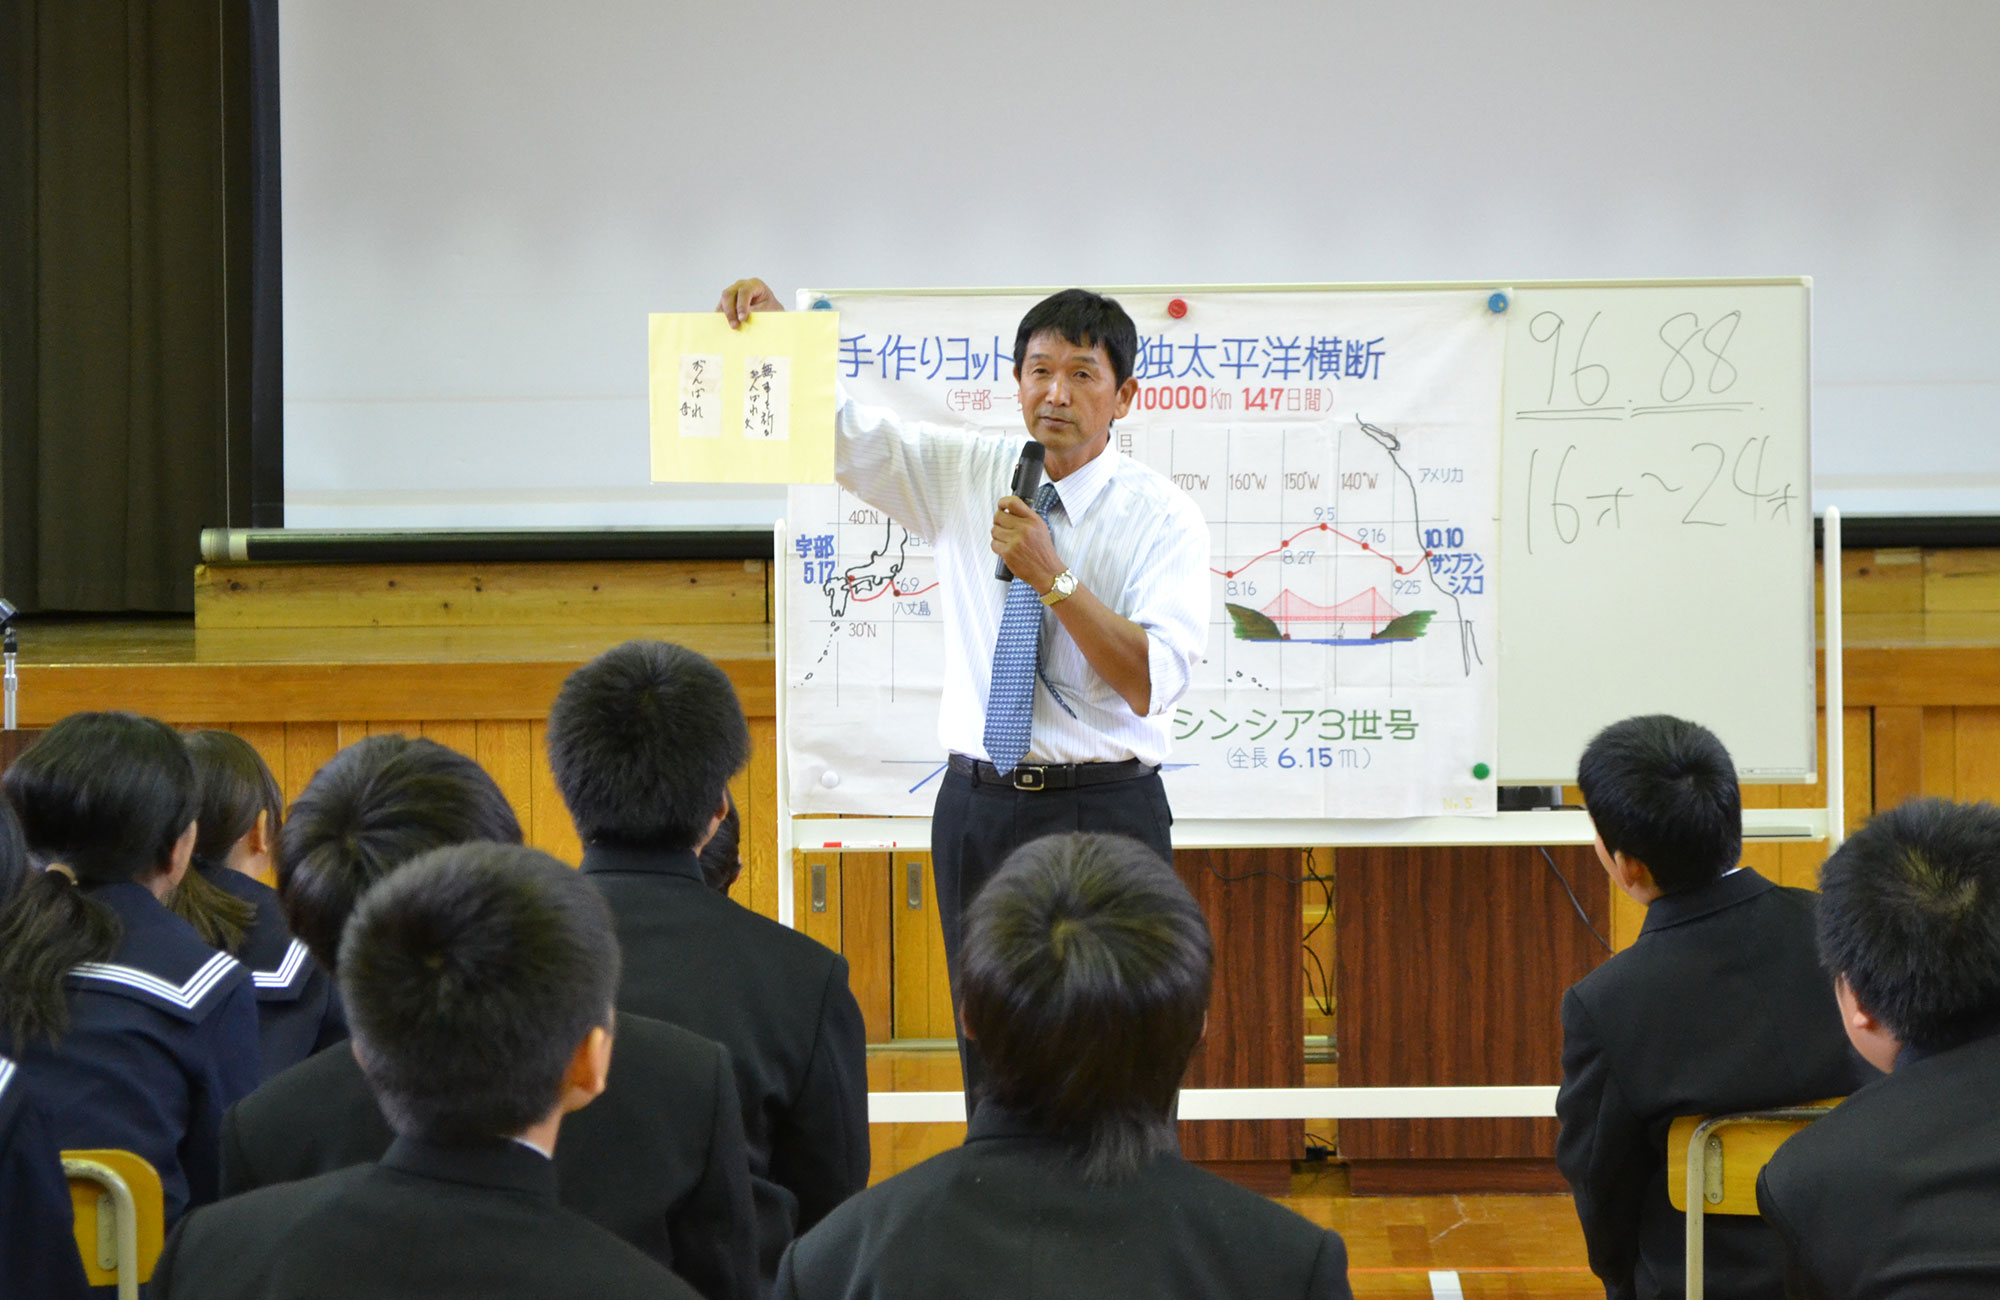 がんばれ
無事を祈る
がんばれ 父
手作りヨット
独太平洋横断
(宇部ー
10000Km 147日間)
170°W 160°W 150°W 140°W
アメリカ
40°N
30°N
宇部
5.17
6.9
八丈島
8.16
8.27
9.5
9.16
9.25
10.10
サンフラン
シスコ
シンシア3世号
(全長 6.15m)
No.5
96.88.
16才~24才